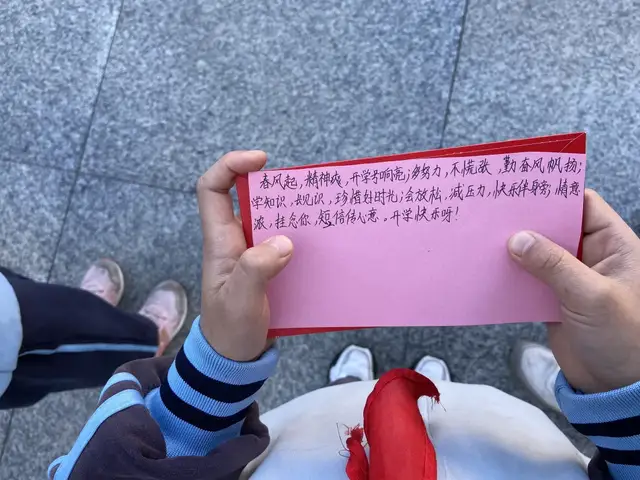 春风起，精神爽，开学号响亮；多努力，不慌张，勤奋风帆扬；
学知识，长见识，珍惜好时光；会放松，减压力，快乐伴身旁；情意
浓，挂念你，短信传心意。开学快乐呀！